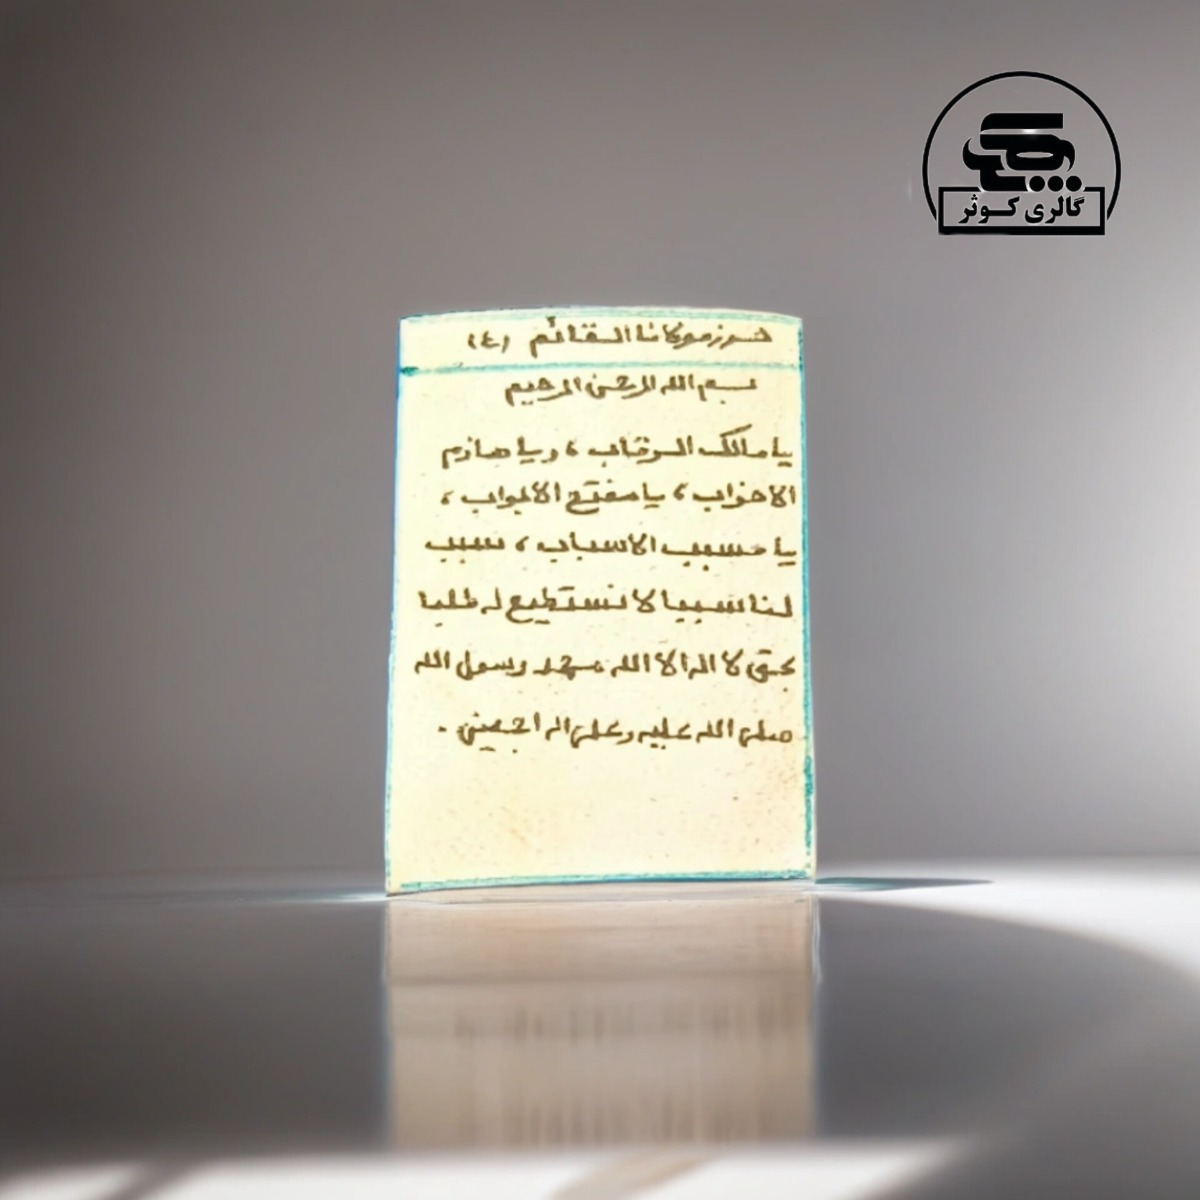 گالری کوثر
حرز مولانا القائم (ع)
بسم الله الرحمن الرحیم
یا مالك الرقاب ، ویا هازم
الاحزاب ، یا مفتح الابواب ،
یا مسبب الاسباب ، سبب
لنا سببا لا نستطیع له طلبا
بحق لا اله الا الله محمد رسول الله
صلی الله علیه وعلی اله اجمعین .